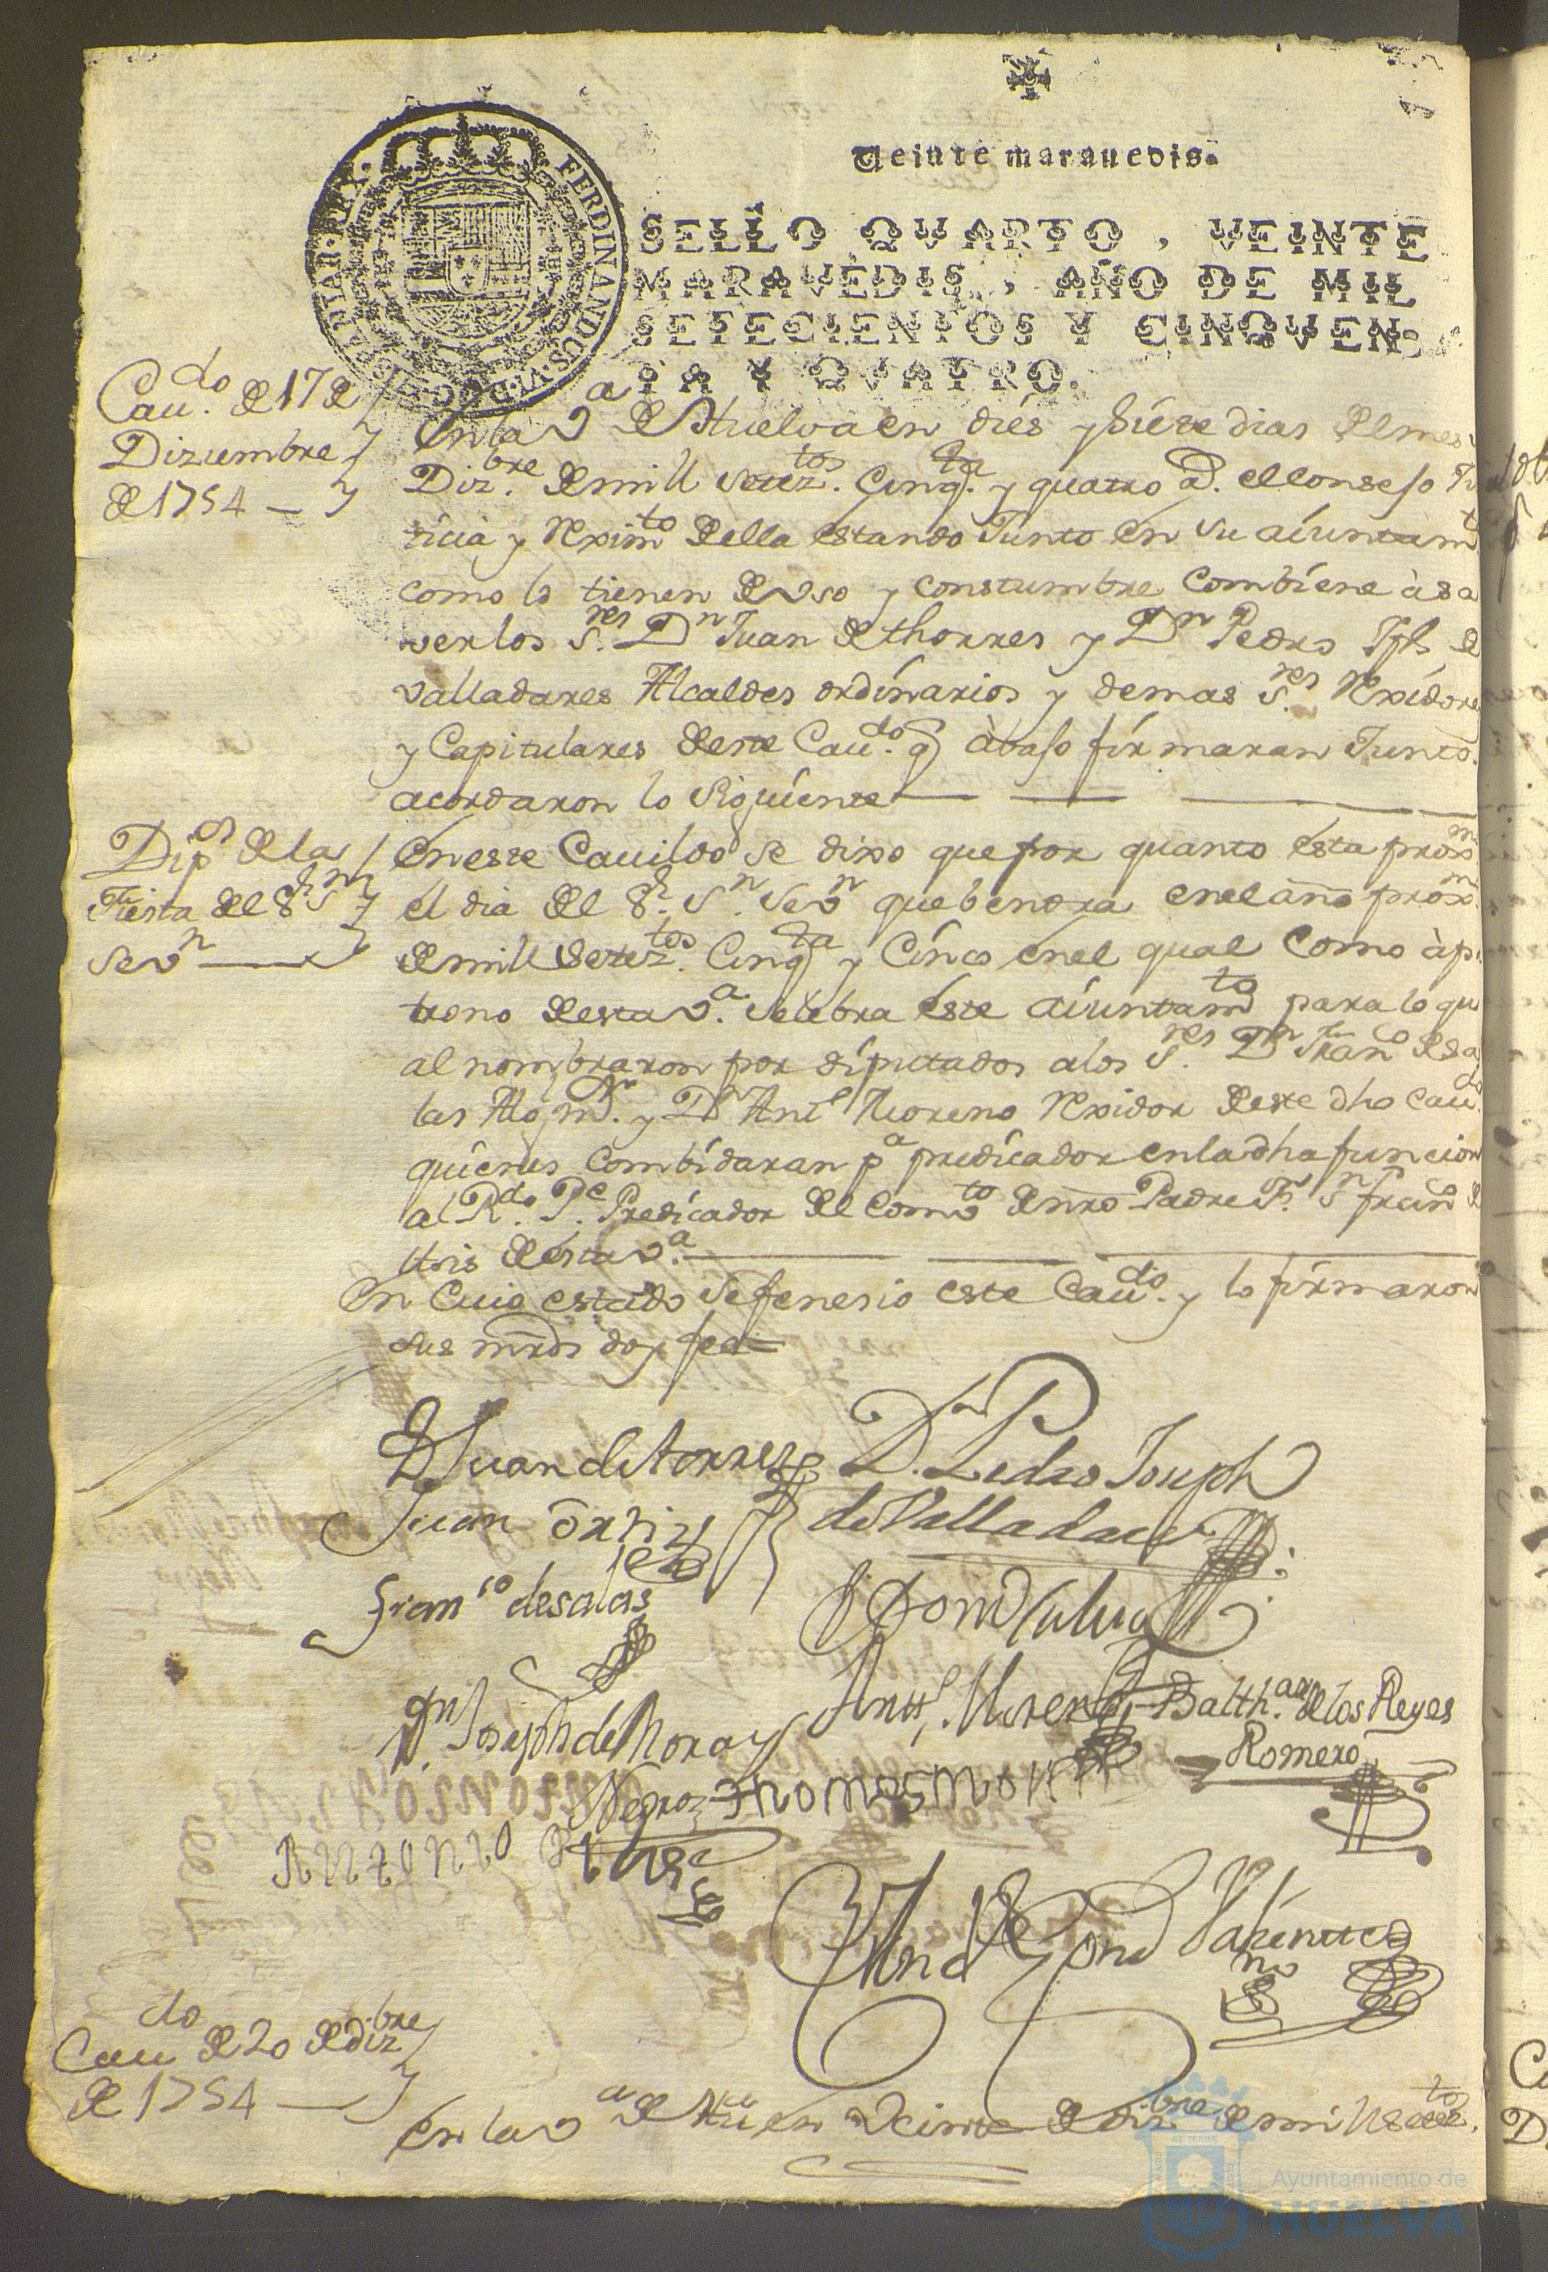 Veinte maravedis.
SELLO QVARTO, VEINTE
MARAVEDIS, AÑO DE MIL
SETECIENTOS Y CINQVEN-
TA Y QVATRO.
FERDINANDUS VI D G
Cau.do de 17 de
Diziembre
de 1754
En la V.a de Huelva en dies y Siete dias del mes
Diz.bre de mill setez.tos Cinq.ta y quatro a.s el Consejo Jus
ticia y Reximto della estando Junto en su aiuntamto
como lo tienen de Vso y constumbre combiene à sa
ver los S.res Dn Juan de thorres y Dn Pedro Jph de
valladares Alcaldes ordinarios y demas S.res Rexidores
y Capitulares deste Cau.do q abajo firmaran Juntos
acordaron lo Siguiente
Dip.os de la
Fiesta del S.r Sn
Sevn
En este Cauildo se dixo que por quanto esta proxm
el dia del S.r Sn Sevn que bendra en el año proxm
de mill setez.tos Cinq.ta y Cinco en el qual como à pa
trono desta V.a selebra este aiuntamto para lo qu
al nombraron por diputados a los S.res Dn Franco de sa
las Alg.l m.r y Dn Antt Moreno Rexidor deste dho Caudo
quienes combidaran pa predicador en la dha funcion
al Rdo. Pe. Predicador del comvto de nro Padre Sn Franco de
Asis desta V.a
En Cuio estado se fenesio este Cau.do y lo firmaron
sus mrds doy fee
Dn Juan de torres
Dn Pedro Joseph
de Valladares
Juan Ortiz
Franco de salas
Antt Moreno
Balth.ar de los Reyes
Romero
Dn Joseph de Mora y
Negro
Thomas Mon
Antonio
Valiente
Cau.do de 20 de dizbre
de 1754
En la V.a de Hua en Veinte de dizbre de mill setez.tos
Ayuntamiento de
HUELVA